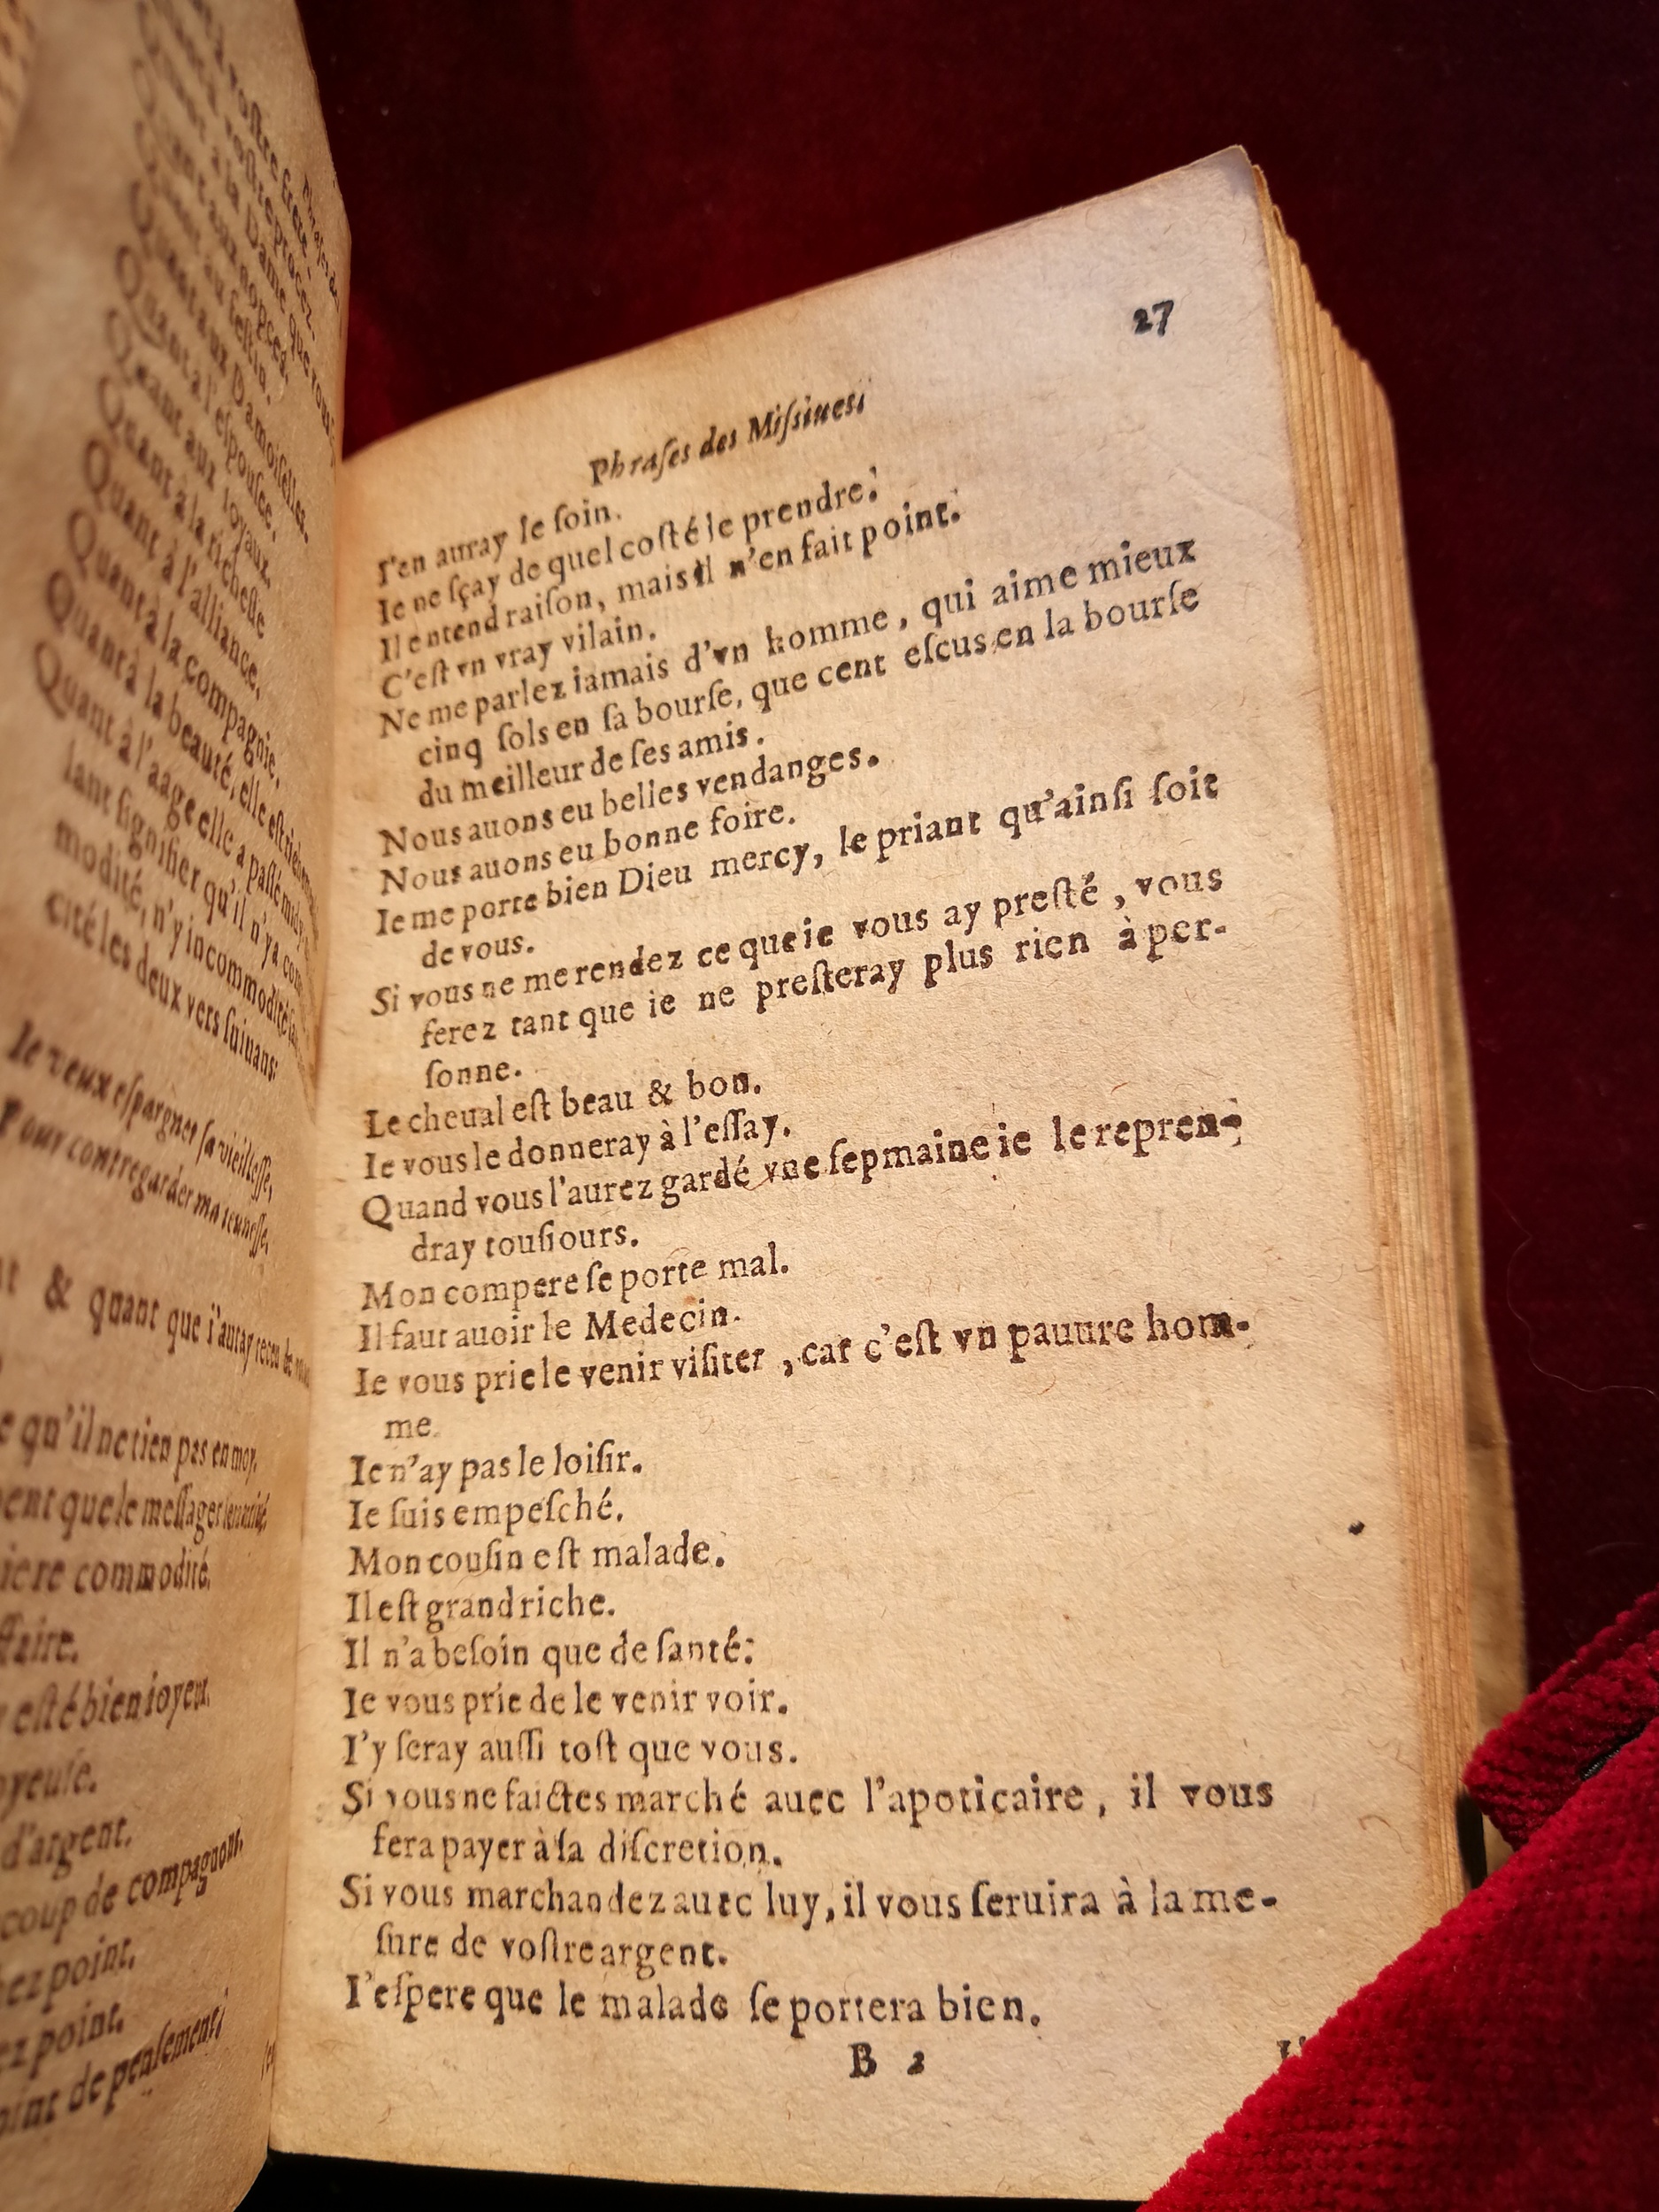 lant signifier qu'il n'y a com
modité, n'y incommodité
cité les deux vers suiuans:
Ie veux espargner sa vieillesse,
Pour contregarder ma ieunesse,
& quant que i'auray receu de
qu'il ne tien pas en moy.
que le messager
commodité.
esté bien ioyeux,
d'argent.
coup de compagnons,
point.
point.
point de pensement
Quant à l'aage elle a passé midy
Quant à la beauté, elle est
Quant à la compagnie.
Quant à l'alliance.
Quant à la richesse
Quant aux ioyaux.
Quant à l'espousee.
Quant aux Damoiselles.
27
Phraſes des Miſsiues
I'en auray le ſoin.
Ie ne ſçay de quel coſté le prendre.
Il entend raiſon, mais il n'en fait point.
C'eſt vn vray vilain.
Ne me parlez iamais d'vn homme, qui aime mieux
cinq ſols en ſa bourſe, que cent eſcus en la bourſe
du meilleur de ſes amis.
Nous auons eu belles vendanges.
Nous auons eu bonne foire.
Ie me porte bien Dieu mercy, le priant qu'ainſi ſoit
de vous.
Si vous ne me rendez ce que ie vous ay preſté, vous
ferez tant que ie ne preſteray plus rien à per-
ſonne.
Le cheual eſt beau & bon.
Ie vous le donneray à l'eſſay.
Quand vous l'aurez gardé vne ſepmaine ie le repren-
dray touſiours.
Mon compere ſe porte mal.
Il faut auoir le Medecin.
Ie vous prie le venir viſiter, car c'eſt vn pauure hom-
me.
Ie n'ay pas le loiſir.
Ie ſuis empeſché.
Mon couſin eſt malade.
Il eſt grand riche.
Il n'a beſoin que de ſanté:
Ie vous prie de le venir voir.
I'y ſeray auſſi toſt que vous.
Si vous ne faictes marché auec l'apoticaire, il vous
fera payer à ſa diſcretion.
Si vous marchandez auec luy, il vous ſeruira à la me-
ſure de voſtre argent.
I'eſpere que le malade ſe portera bien.
B 2